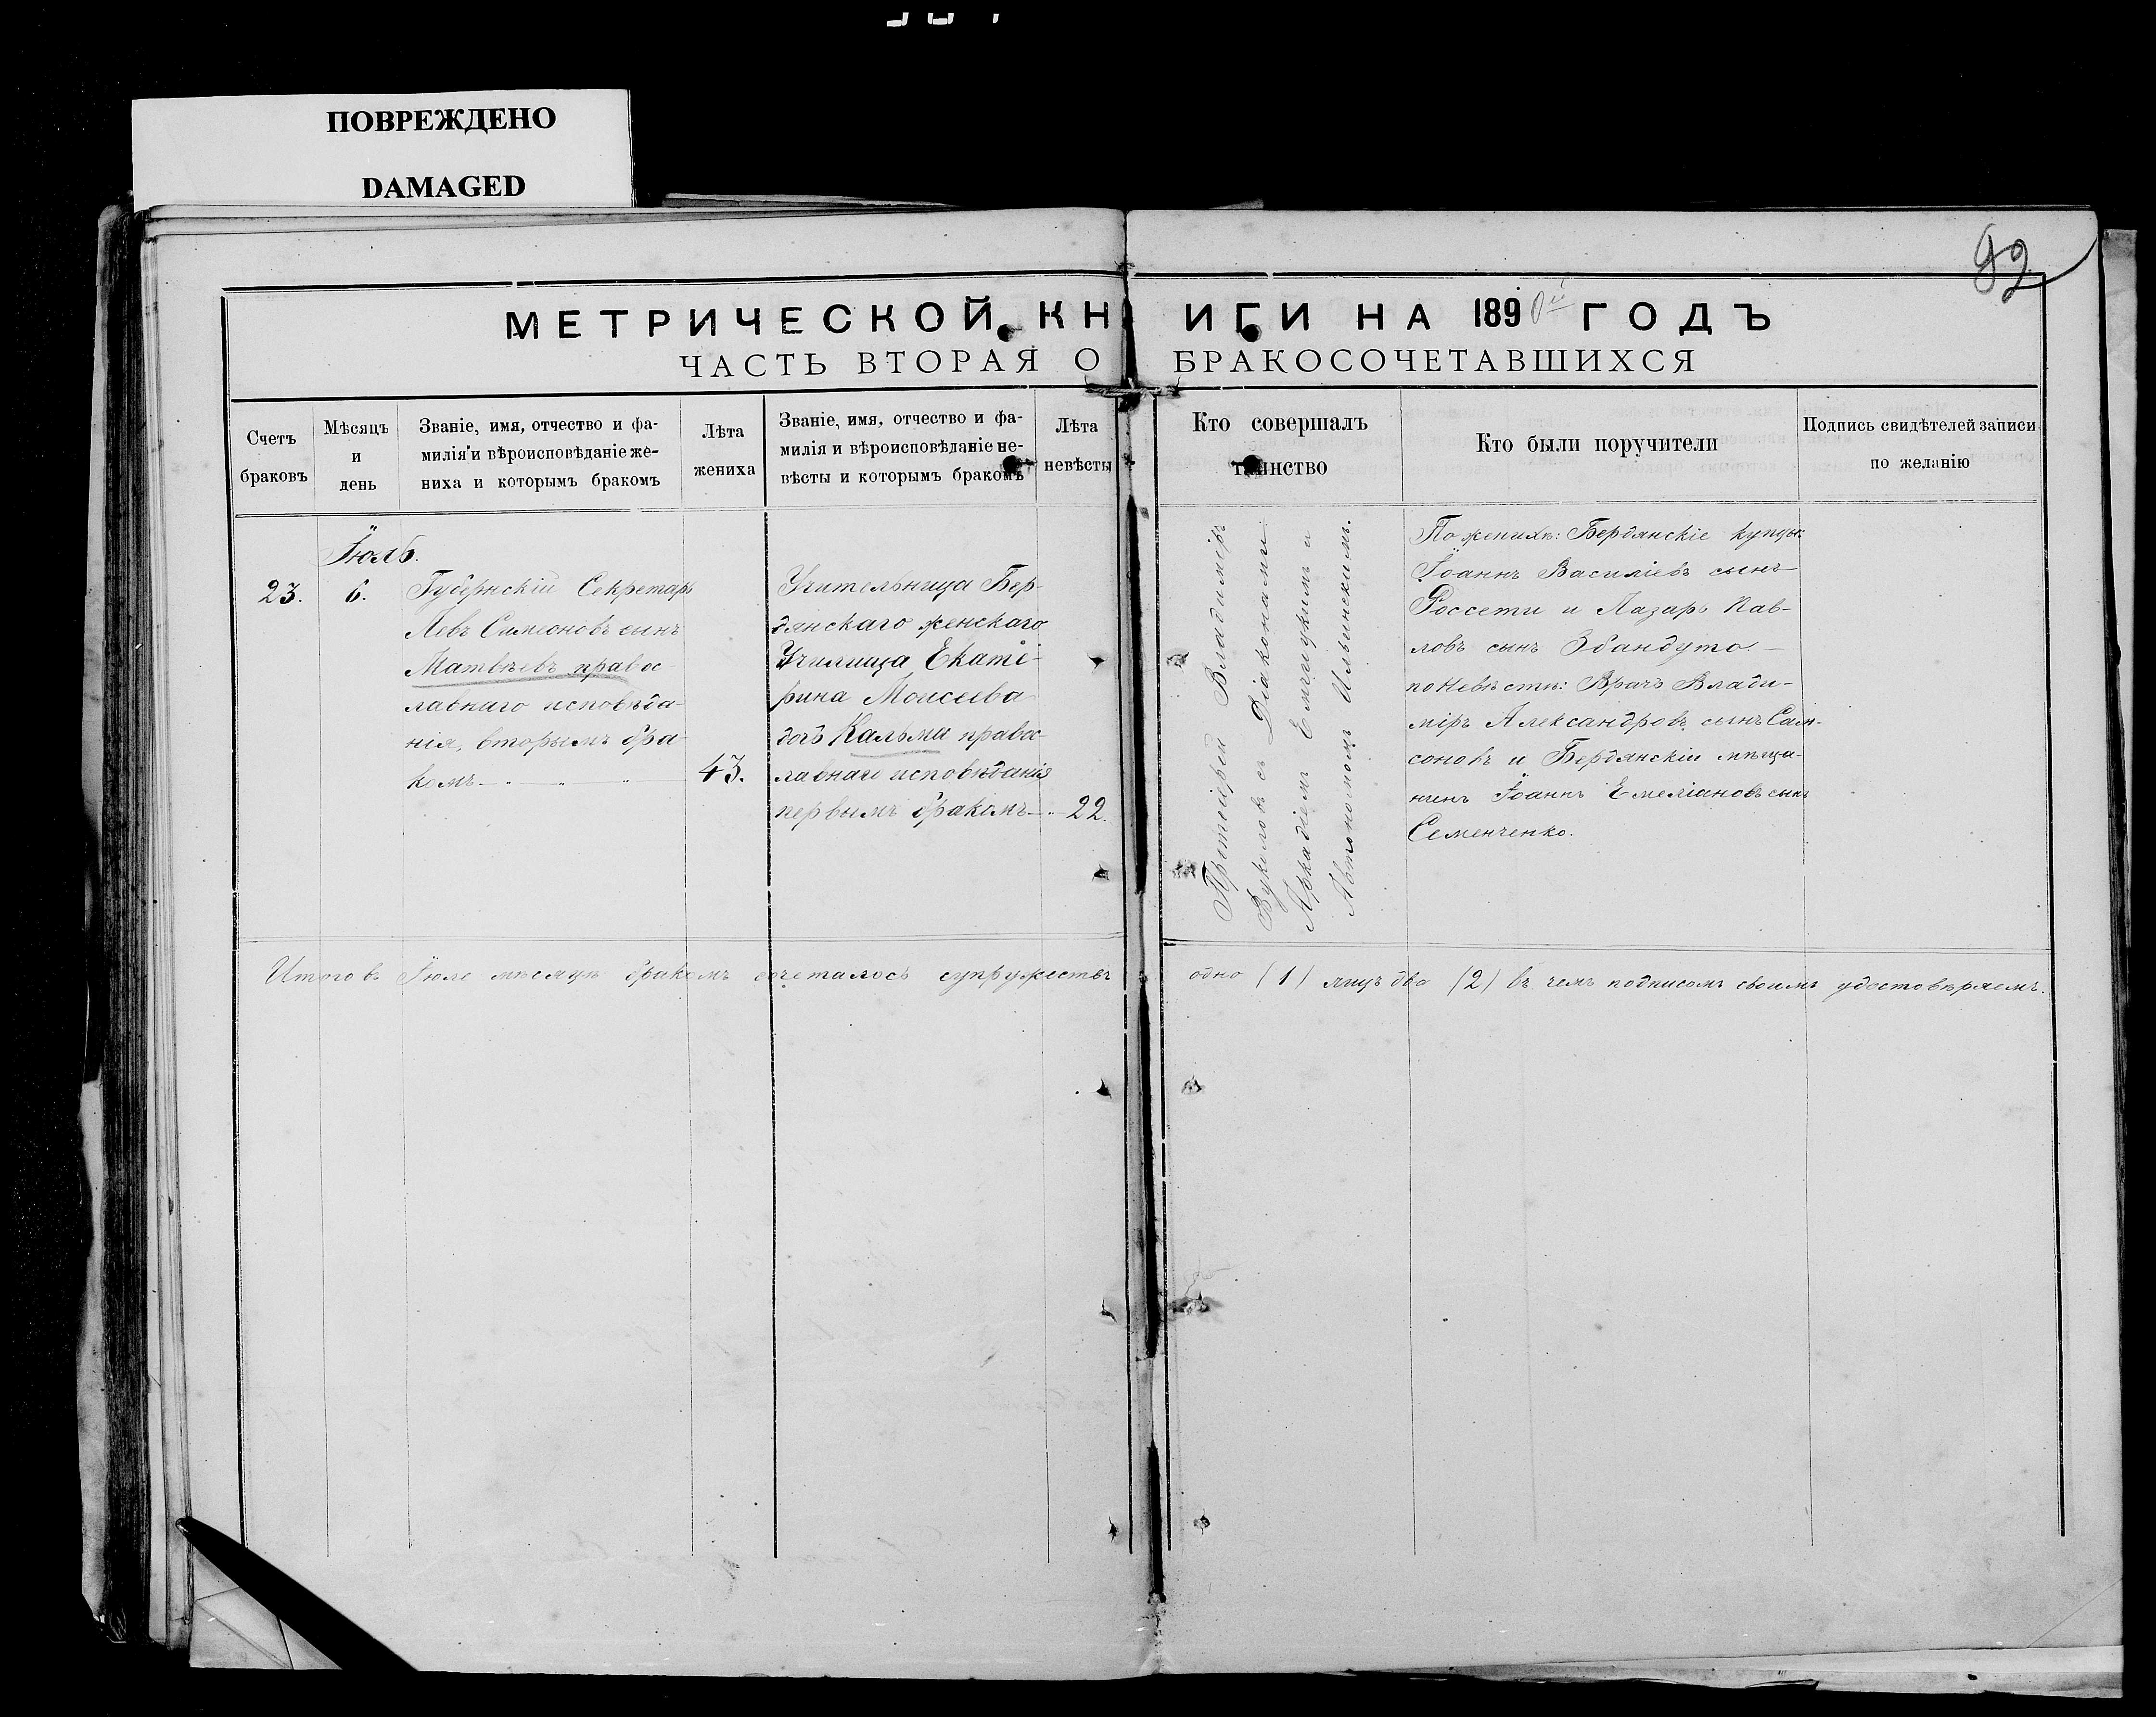 ПОВРЕЖДЕНО
DAMAGED
92
МЕТРИЧЕСКОЙ КНИГИ НА 1890й ГОДЪ
ЧАСТЬ ВТОРАЯ О БРАКОСОЧЕТАВШИХСЯ
Счетъ
браковъ
Мѣсяцъ
и
день
Званіе, имя, отчество и фа-
милія и вѣроисповѣданіе же-
ниха и которымъ бракомъ
Лѣта
жениха
Званіе, имя, отчество и фа-
милія и вѣроисповѣданіе не-
вѣсты и которымъ бракомъ
Лѣта
невѣсты
Кто совершалъ
таинство
Кто были поручители
Подпись свидѣтелей записи
по желанію
Іюль.
23.
6.
Губернскій Секретарь
Левъ Симеоновъ сынъ
Матвѣевъ, правос-
лавнаго исповѣда-
нія, вторымъ бра-
комъ
43.
Учительница Бер-
дянскаго женскаго
Училища Екате-
рина Моисеева
дочь Кальми правос-
лавнаго исповѣданія
первымъ бракомъ
22.
Протоіерей Владиміръ
Вуколовъ съ Діаконами:
Аркадіемъ и
Автономомъ Ильинскимъ.
По женихѣ: Бердянскіе купцы:
Іоаннъ Василіевъ сынъ
Россети и Лазарь Пав-
ловъ сынъ Збандуто
по невѣстѣ: Врачъ Влади-
міръ Александровъ сынъ Сам-
соновъ и Бердянскій мѣща-
нинъ Іоаннъ Емеліановъ сынъ
Семенченко.
Итого въ Іюлѣ мѣсяцѣ бракомъ сочеталось супружествъ одно (1) лицъ два (2) въ чемъ подписомъ своимъ удостовѣряемъ.